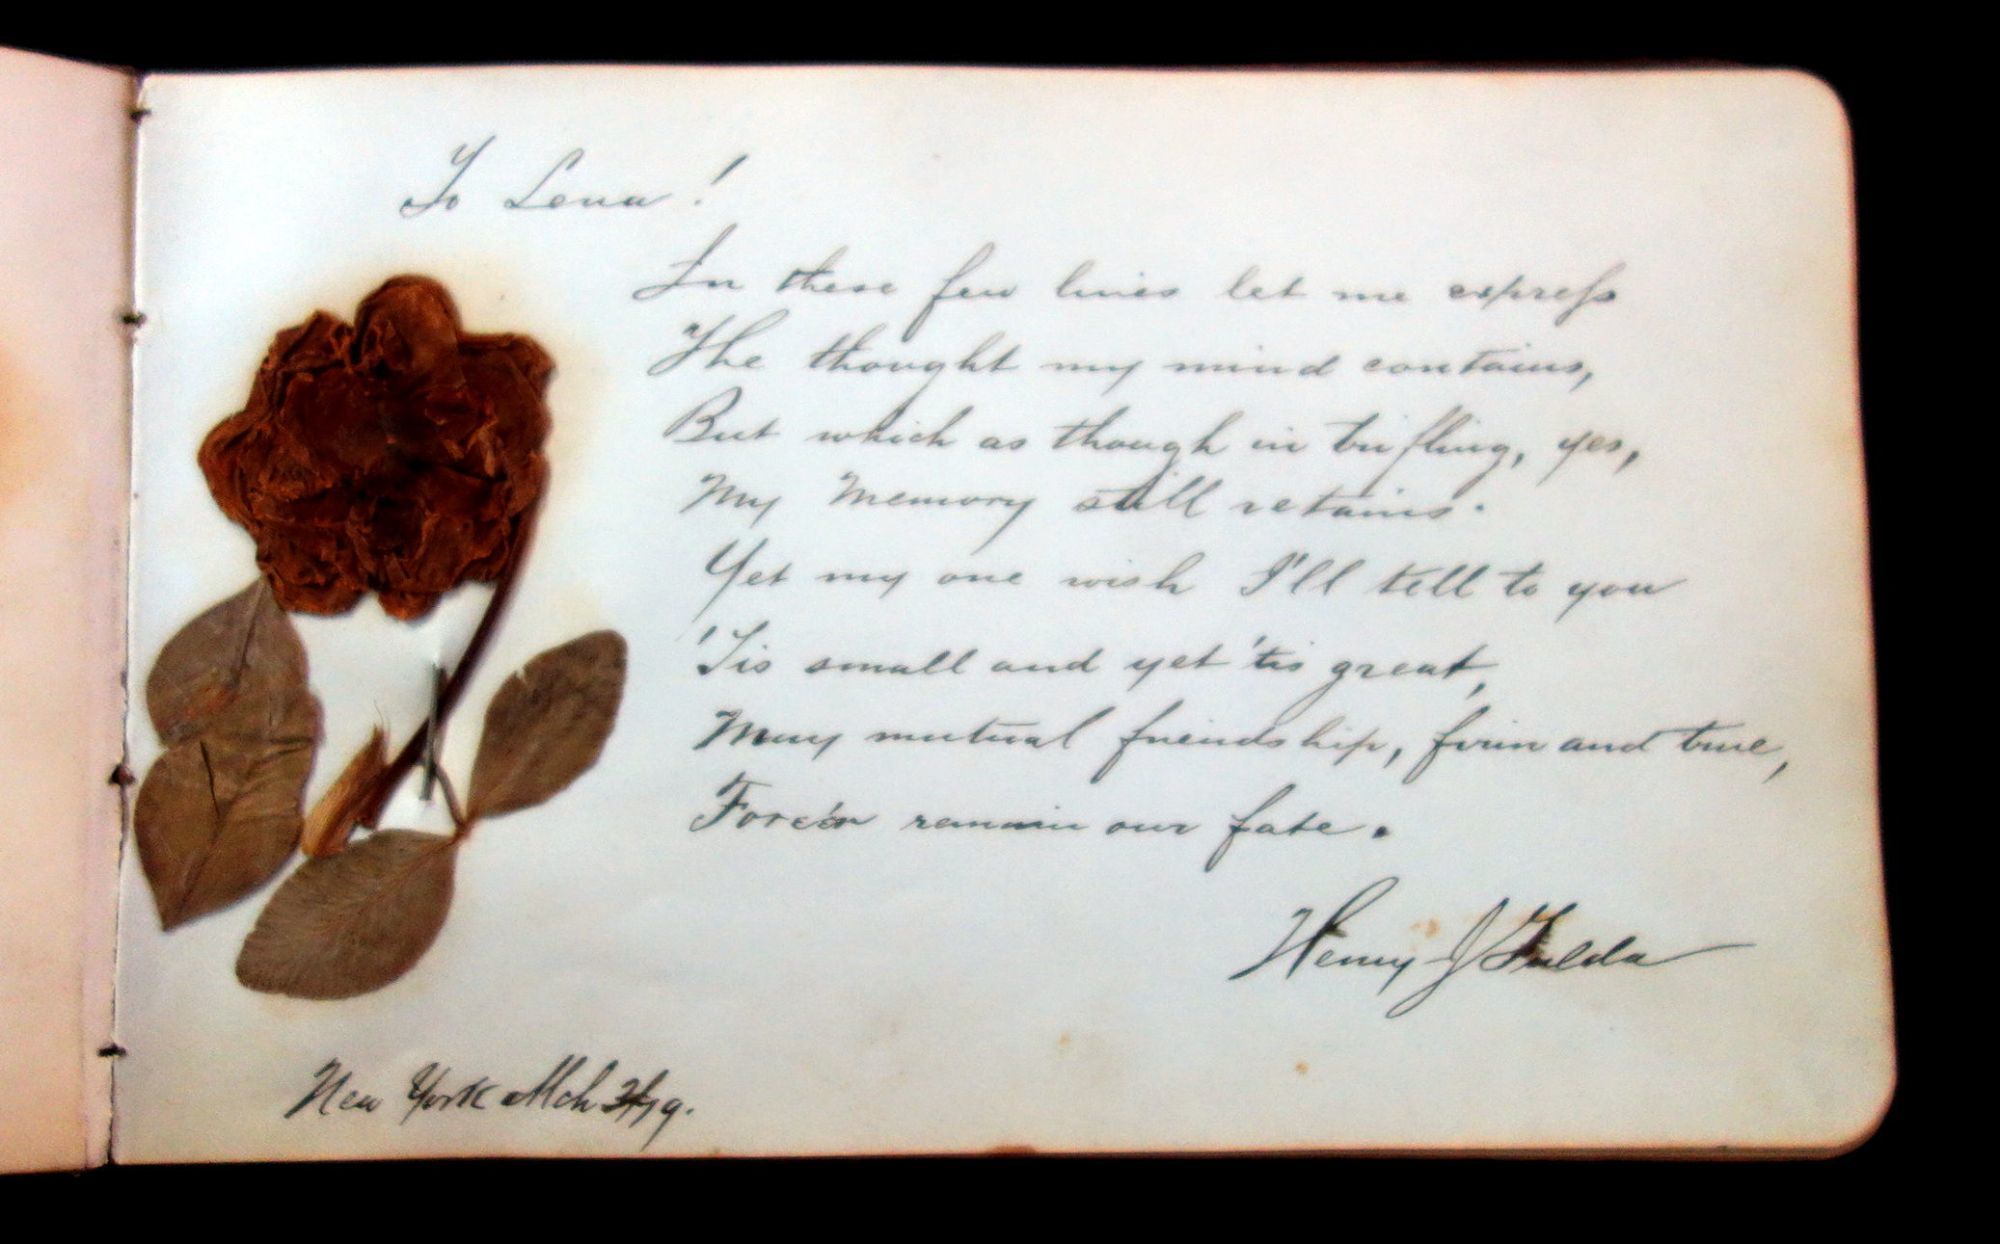 To Lena!
In these few lines let me express
The thought my mind contains,
But which as though in trifling, yes,
My Memory still retains.
Yet my one wish I'll tell to you
'Tis small and yet 'tis great,
May mutual friendship, firm and true,
Fore'er remain our fate.
Henry J Fulda
New York Mch